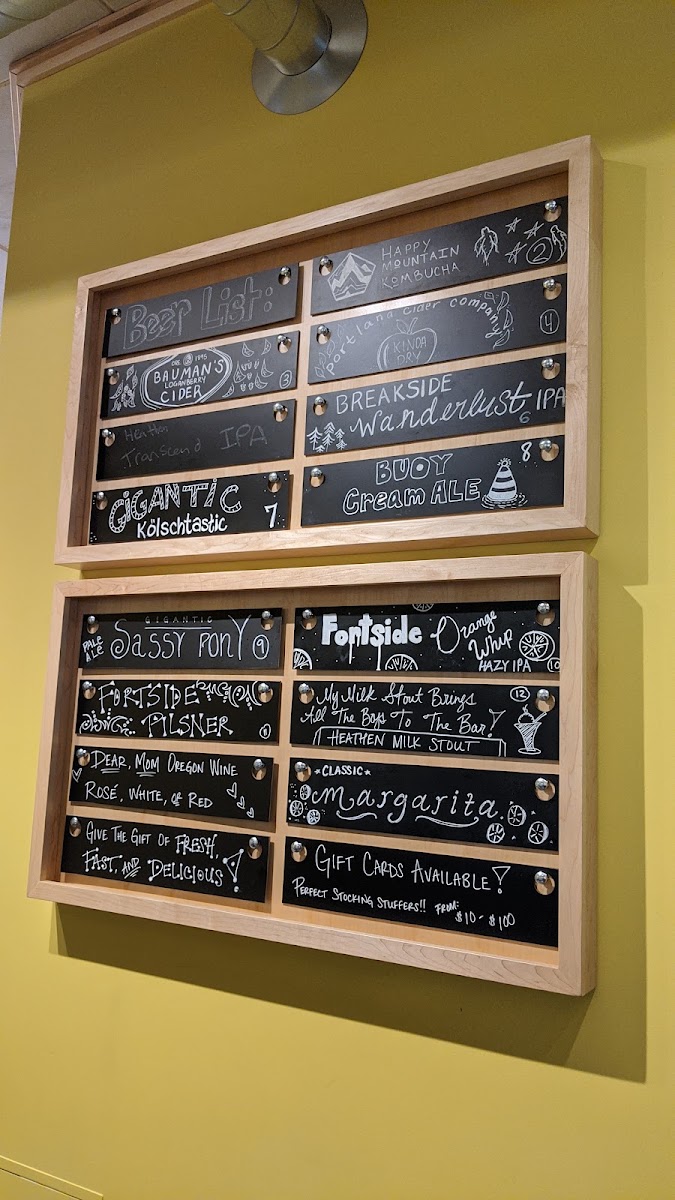 Beer List:
HAPPY
MOUNTAIN
KOMBUCHA
2
EST. 1895
BAUMAN'S
LOGANBERRY
CIDER
3
Portland Cider Company
KINDA
DRY
4
Heathen
Transcend IPA
BREAKSIDE
Wanderlust IPA
6
GIGANTIC
Kölschtastic
7
BUOY
Cream ALE
8
GIGANTIC
PALE
ALE
SASSY PONY
9
Fortside
Orange
Whip
HAZY IPA
10
FORTSIDE
PILSNER
11
My Milk Stout Brings
All The Boys To The Bar!
HEATHEN MILK STOUT
12
DEAR, MOM OREGON WINE
ROSÉ, WHITE, OR RED
*CLASSIC*
margarita
GIVE THE GIFT OF FRESH,
FAST, AND DELICIOUS!
GIFT CARDS AVAILABLE!
PERFECT STOCKING STUFFERS!! FROM:
$10 - $100